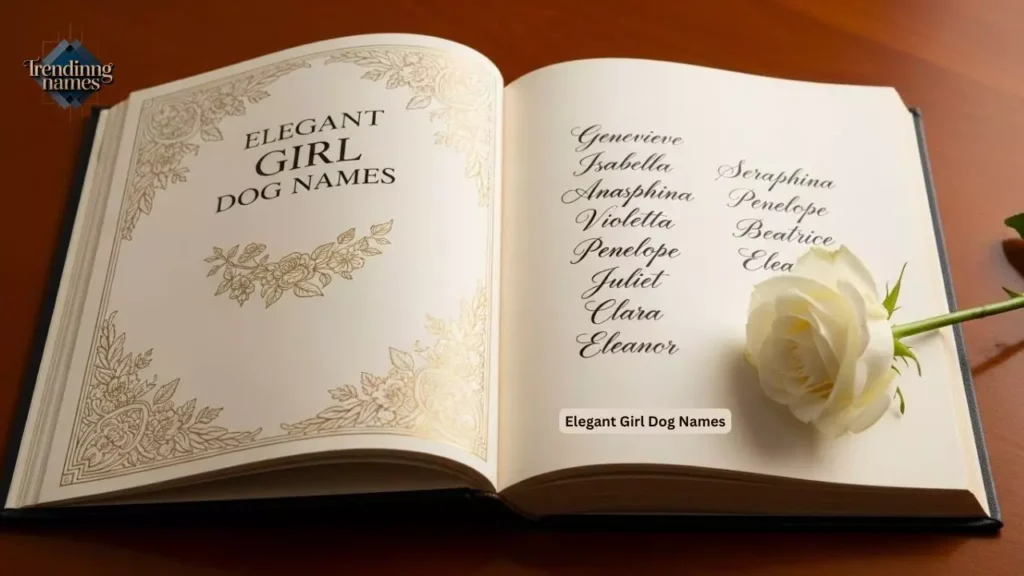 Trendinng
names
ELEGANT
GIRL
DOG NAMES
Genevieve
Isabella
Anasphina
Violetta
Penelope
Juliet
Clara
Eleanor
Seraphina
Penelope
Beatrice
Elea
Elegant Girl Dog Names